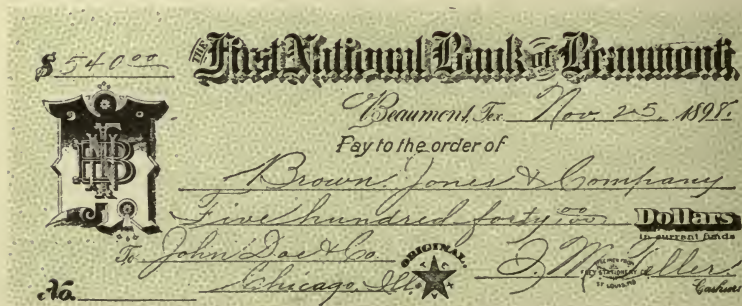 $ 540 00 THE First National Bank of Beaumont,
Beaumont, Tex. Nov. 25, 1898.
Pay to the order of
Brown, Jones & Company
Five hundred forty 00/100 Dollars
in current funds
To John Doe & Co.
Chicago, Ill.
ORIGINAL.
No.
ST LOUIS, MO
Cashier